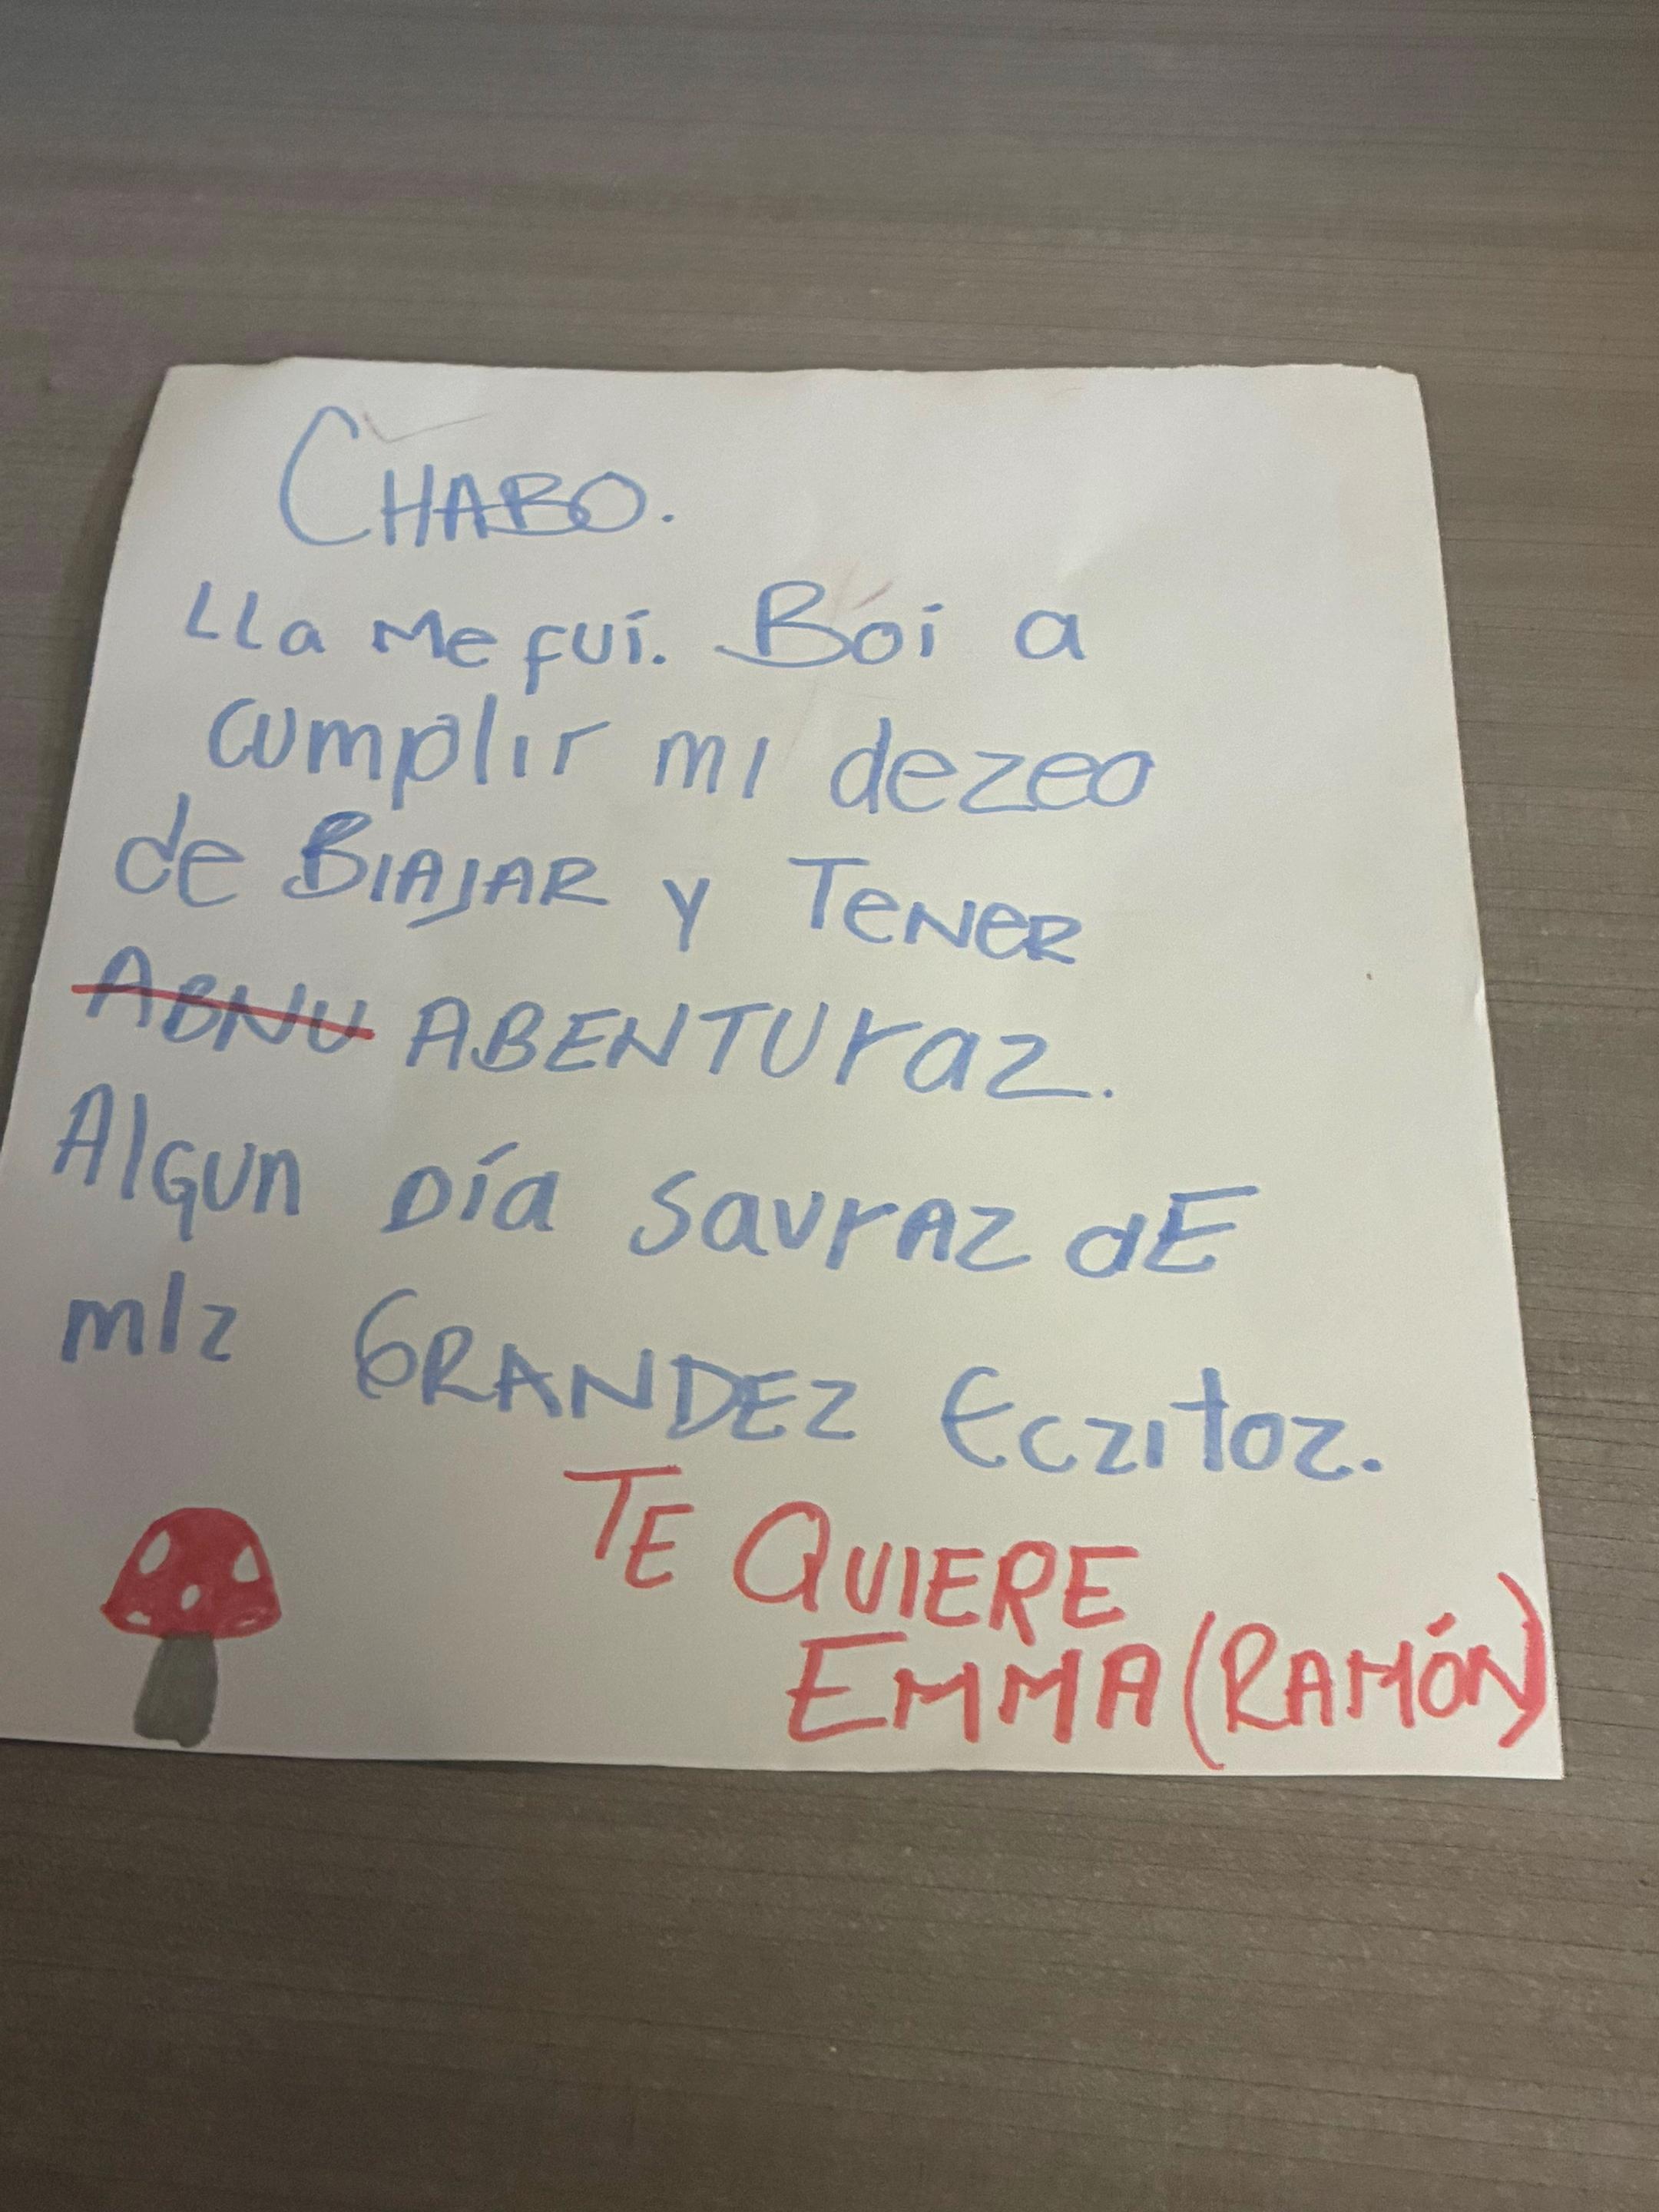 CHABO.
LLa Me fuí. Bói a
cumplir mi dezeo
de BIAJAR y TENER
ABNU ABENTUraz.
Algun Día SavrAz dE
mIz GRANDEZ Eczitoz.
TE QUIERE
EMMA (RAMÓN)